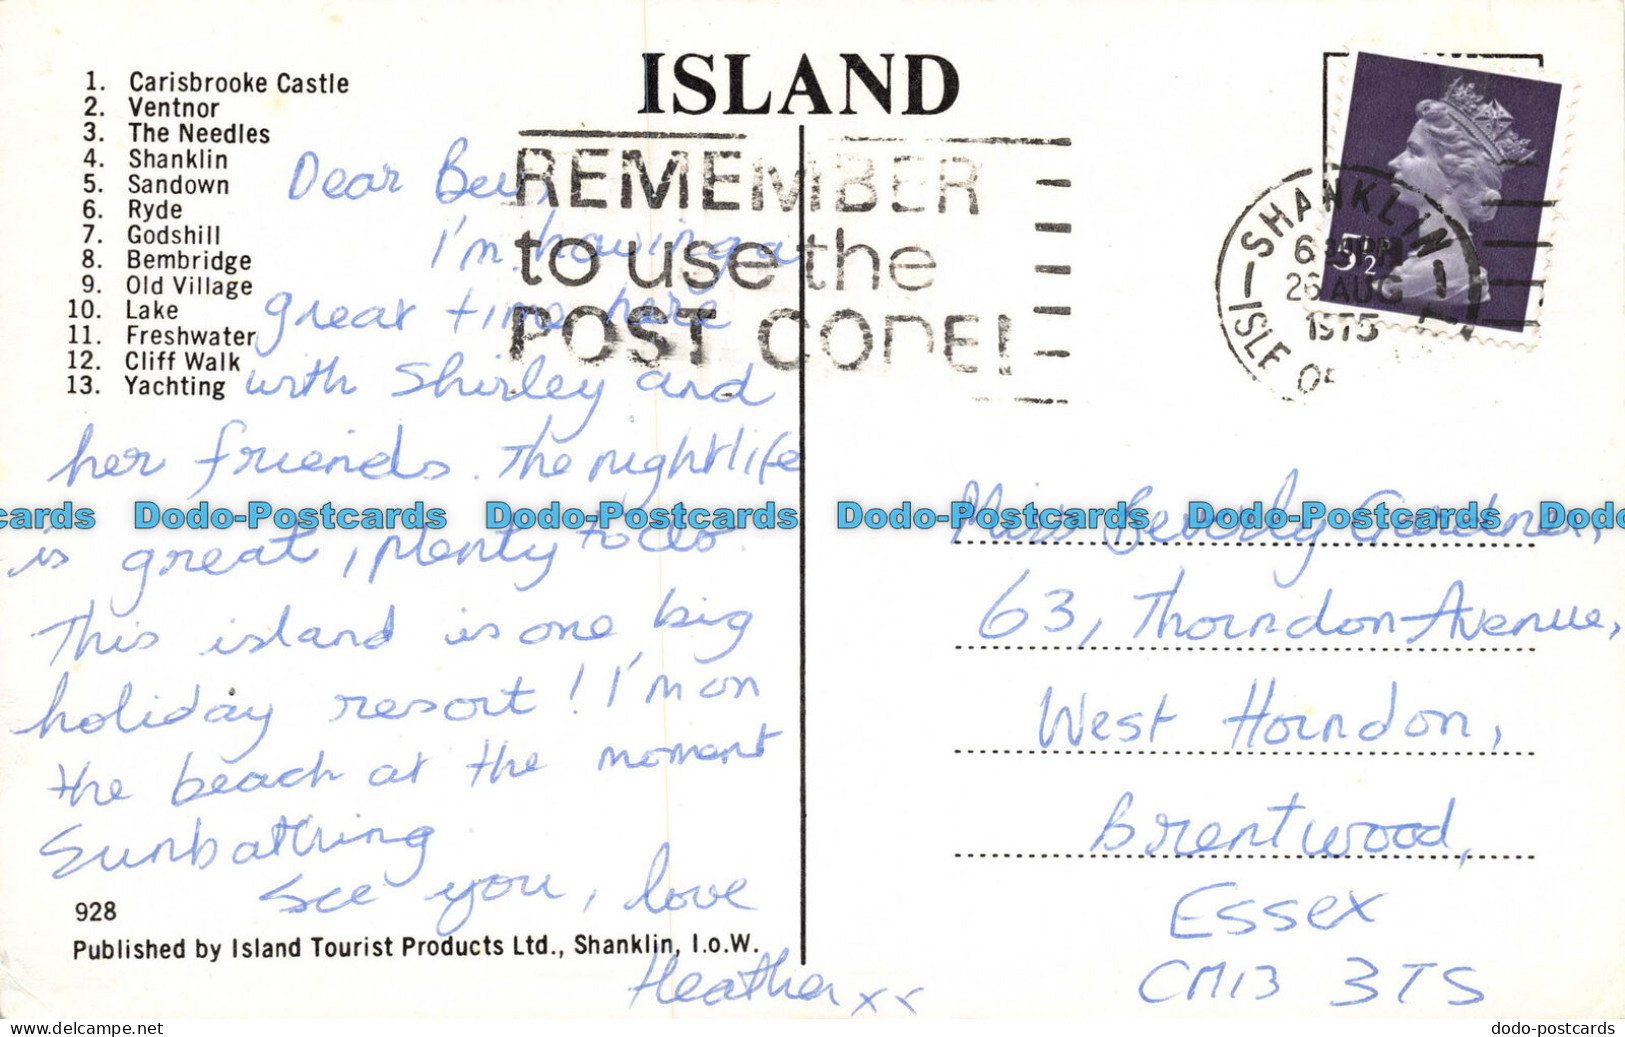 ISLAND
1. Carisbrooke Castle
2. Ventnor
3. The Needles
4. Shanklin
5. Sandown
6. Ryde
7. Godshill
8. Bembridge
9. Old Village
10. Lake
11. Freshwater
12. Cliff Walk
13. Yachting
REMEMBER
to use the
POST CODE!
SHANKLIN
6 PM
26 AUG
1975
ISLE OF
5½P
Dear Bev,
I'm having a
great time here
with Shirley and
her friends. The nightlife
is great, plenty to do.
This island is one big
holiday resort! I'm on
the beach at the moment
Sunbathing
See you, love
Heather xx
928
Published by Island Tourist Products Ltd., Shanklin, I.o.W.
Miss Beverly Gardner,
63, Thorndon Avenue,
West Horndon,
Brentwood,
Essex
CM13 3TS
cards Dodo-Postcards Dodo-Postcards Dodo-Postcards Dodo-Postcards Dodo
www.delcampe.net
dodo-postcards